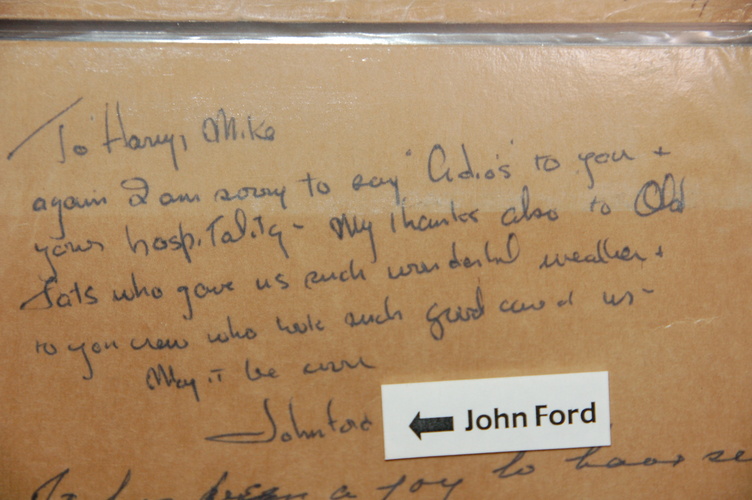 To Harry & Mike
again I am sorry to say "Adios" to you +
your hospitality - My thanks also to Old
Fats who gave us such wonderful weather +
to you crew who took such good care of us -
May it be
John Ford
John Ford
a joy to have